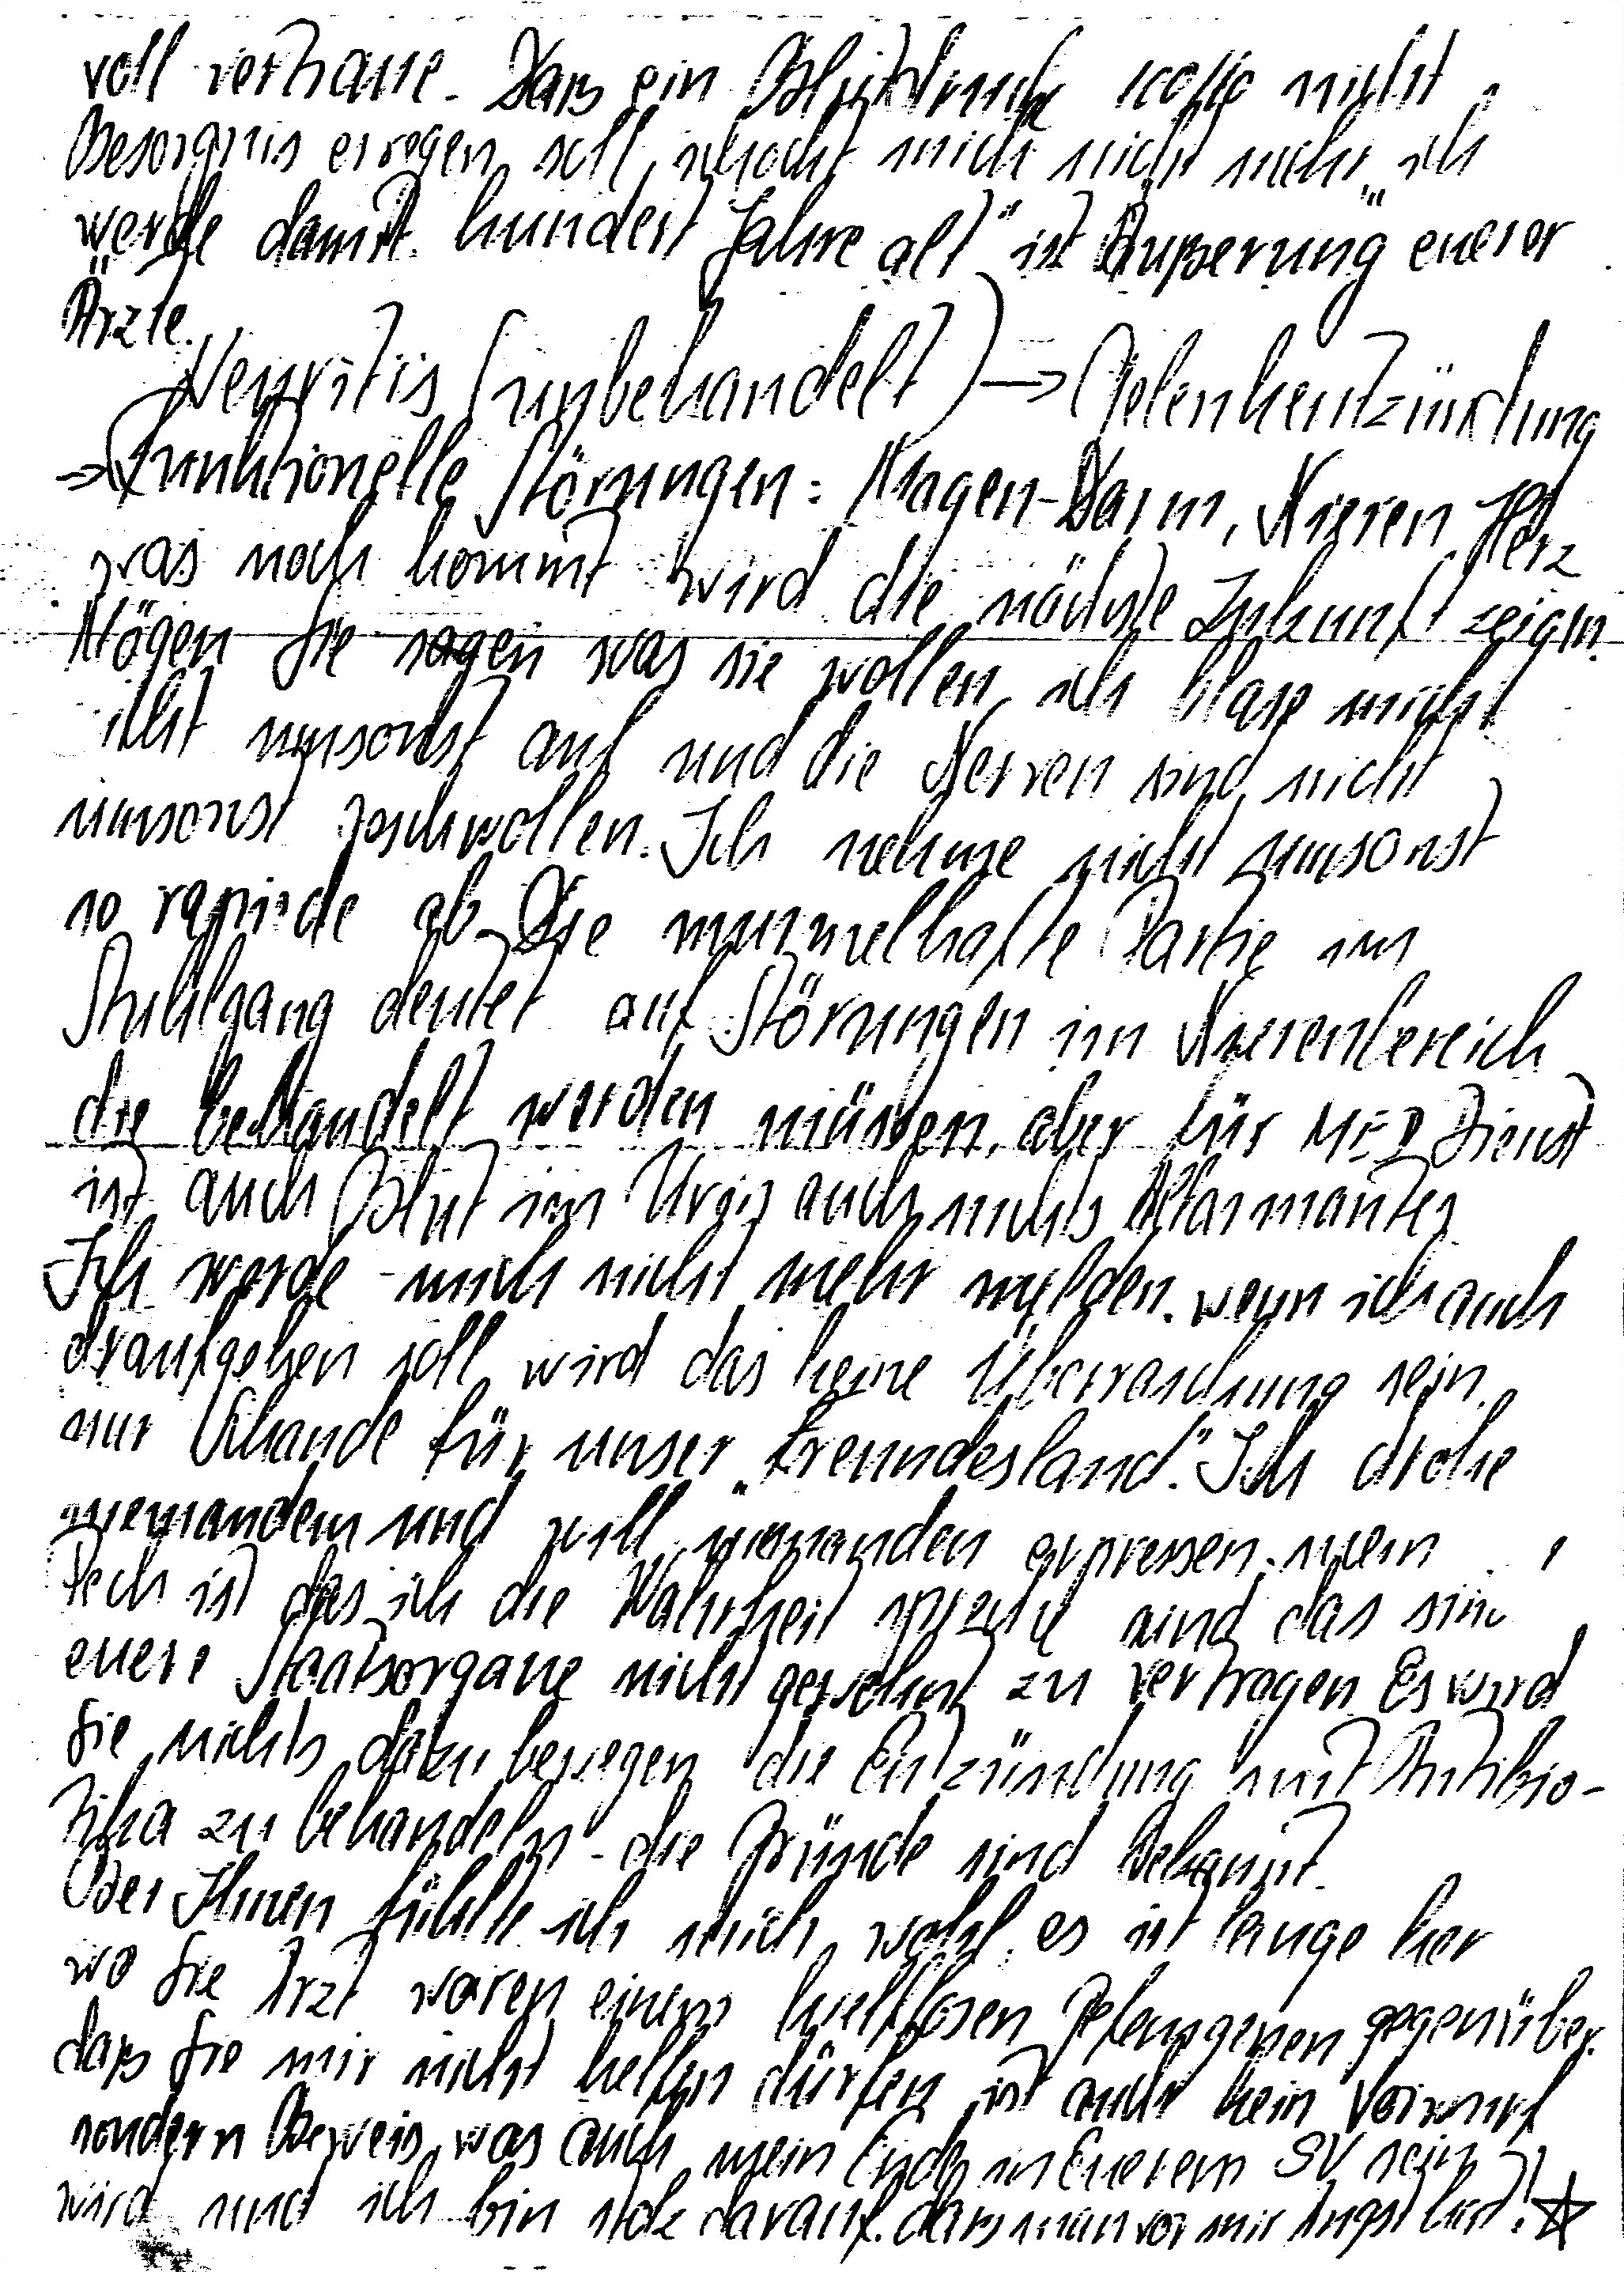 voll vertraue. Dass ein Blutdruck nicht
Besorgnis erregen soll, schockt mich nicht mehr, „ich
werde damit hundert Jahre alt" ist Äußerung euerer
Ärzte.
Neuritis (unbehandelt) → Gelenkentzündung
→ Funktionelle Störungen: Magen-Darm, Nieren Herz
was noch kommt wird die nächste Zukunft zeigen.
Mögen Sie sagen was sie wollen, ich blase mich
nicht umsonst auf und die Nerven sind nicht
umsonst geschwollen. Ich nehme nicht umsonst
so rapiede ab. Die murmelhafte Partie im
Stuhlgang deutet auf Störungen im Nierenbereich
die behandelt werden müssen, aber für MED Dienst
ist auch Blut im Urin auch nichts Alarmantes
Ich werde mich nicht mehr melden. wenn ich auch
draufgehen soll wird das keine Überraschung sein.
nur Schande für unser „Freundesland". Ich drohe
niemandem und will niemanden erpressen. mein
Pech ist das ich die Wahrheit spreche und das sind
euere Staatsorgane nicht gewohnt zu vertragen Es wird
Sie nichts dazu bewegen die Entzündung mit Antibio-
tika zu behandeln - die Gründe sind bekannt.
Bei Ihnen fühlte ich mich wohl, es ist lange her
wo Sie Arzt waren einem hielflosen Gefangenen gegenüber.
dass Sie mir nicht helfen dürfen ist auch kein Vorwurf
sondern Beweis, was auch mein Ende in Euerem SV sein
wird und ich bin stolz darauf. dass man vor mir Angst hat!